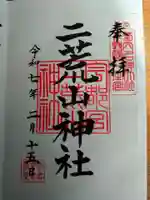 奉拝
二荒山神社
令和七年二月十五日